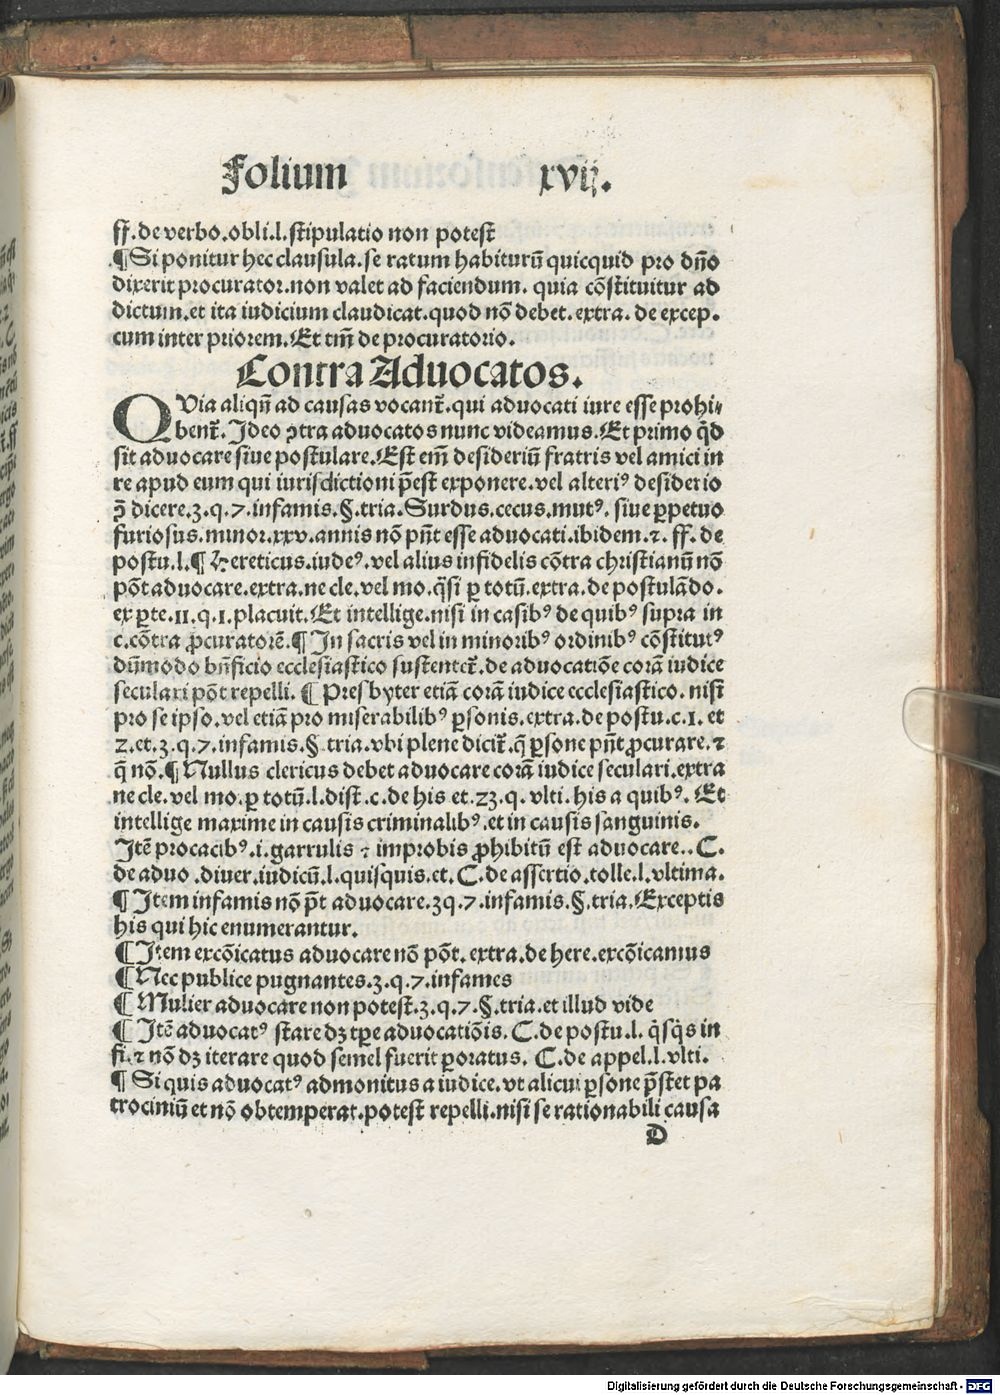 Folium xvij.
ff. de verbo. obli. l. stipulatio non potest
¶ Si ponitur hec clausula. se ratum habiturū quicquid pro dño
dixerit procurator. non valet ad faciendum. quia cōstituitur ad
dictum. et ita iudicium claudicat. quod nō debet. extra. de excep.
cum inter priorem. Et tm̄ de procuratorio.
Contra Aduocatos.
QVia aliqñ ad causas vocant̄. qui aduocati iure esse prohi⸗
bent̄. Ideo ꝯtra aduocatos nunc videamus. Et primo qͥd
sit aduocare siue postulare. Est em̄ desideriū fratris vel amici in
re apud eum qui iurisdictioni p̄est exponere. vel alteriꝰ desiderio
ꝯ̄ dicere. 3. q. 7. infamis. §. tria. Surdus. cecus. mutꝰ. siue ꝑpetuo
furiosus. minor. xxv. annis nō pñt esse aduocati. ibidem. ⁊. ff. de
postu. l. ¶ Hereticus. iudeꝰ. vel alius infidelis cōtra christianū nō
pōt aduocare. extra. ne cle. vel mo. q̄si ꝑ totū. extra. de postulādo.
ex ꝑte. 11. q. 1. placuit. Et intellige. nisi in casibꝰ de quibꝰ supra in
c. cōtra ꝓcuratorē. ¶ In sacris vel in minoribꝰ ordinibꝰ cōstitutꝰ
dūmodo bñficio ecclesiastico sustentet̄. de aduocatiōe corā iudice
seculari pōt repelli. ¶ Presbyter etiā corā iudice ecclesiastico. nisi
pro se ipso. vel etiā pro miserabilibꝰ ꝑsonis. extra. de postu. c. 1. et
2. et. 3. q. 7. infamis. §. tria. vbi plene dicit̄. q̄ ꝑsone pñt ꝓcurare. ⁊
q̄ nō. ¶ Nullus clericus debet aduocare corā iudice seculari. extra
ne cle. vel mo. ꝑ totū. l. dist. c. de his et. 23. q. vlti. his a quibꝰ. Et
intellige maxime in causis criminalibꝰ. et in causis sanguinis.
Itē procacibꝰ. i. garrulis ⁊ improbis ꝓhibitū est aduocare.. C.
de aduo. diuer. iudicū. l. quisquis. et. C. de assertio. tolle. l. vltima.
¶ Item infamis nō p̄t aduocare. 3 q. 7. infamis. §. tria. Exceptis
his qui hic enumerantur.
¶ Item excōicatus aduocare nō pōt. extra. de here. excōicamus
¶ Nec publice pugnantes. 3. q. 7. infames
¶ Mulier aduocare non potest. 3. q. 7. §. tria. et illud vide
¶ Itē aduocatꝰ stare dꝫ tꝑe aduocatiōis. C. de postu. l. qͥsqͥs in
fi. ⁊ nō dꝫ iterare quod semel fuerit ꝑoratus. C. de appel. l. vlti.
¶ Si quis aduocatꝰ admonitus a iudice. vt alicui ꝑsone p̄stet pa
trociniū et nō obtemperat. potest repelli. nisi se rationabili causa
D
Digitalisierung gefördert durch die Deutsche Forschungsgemeinschaft - DFG